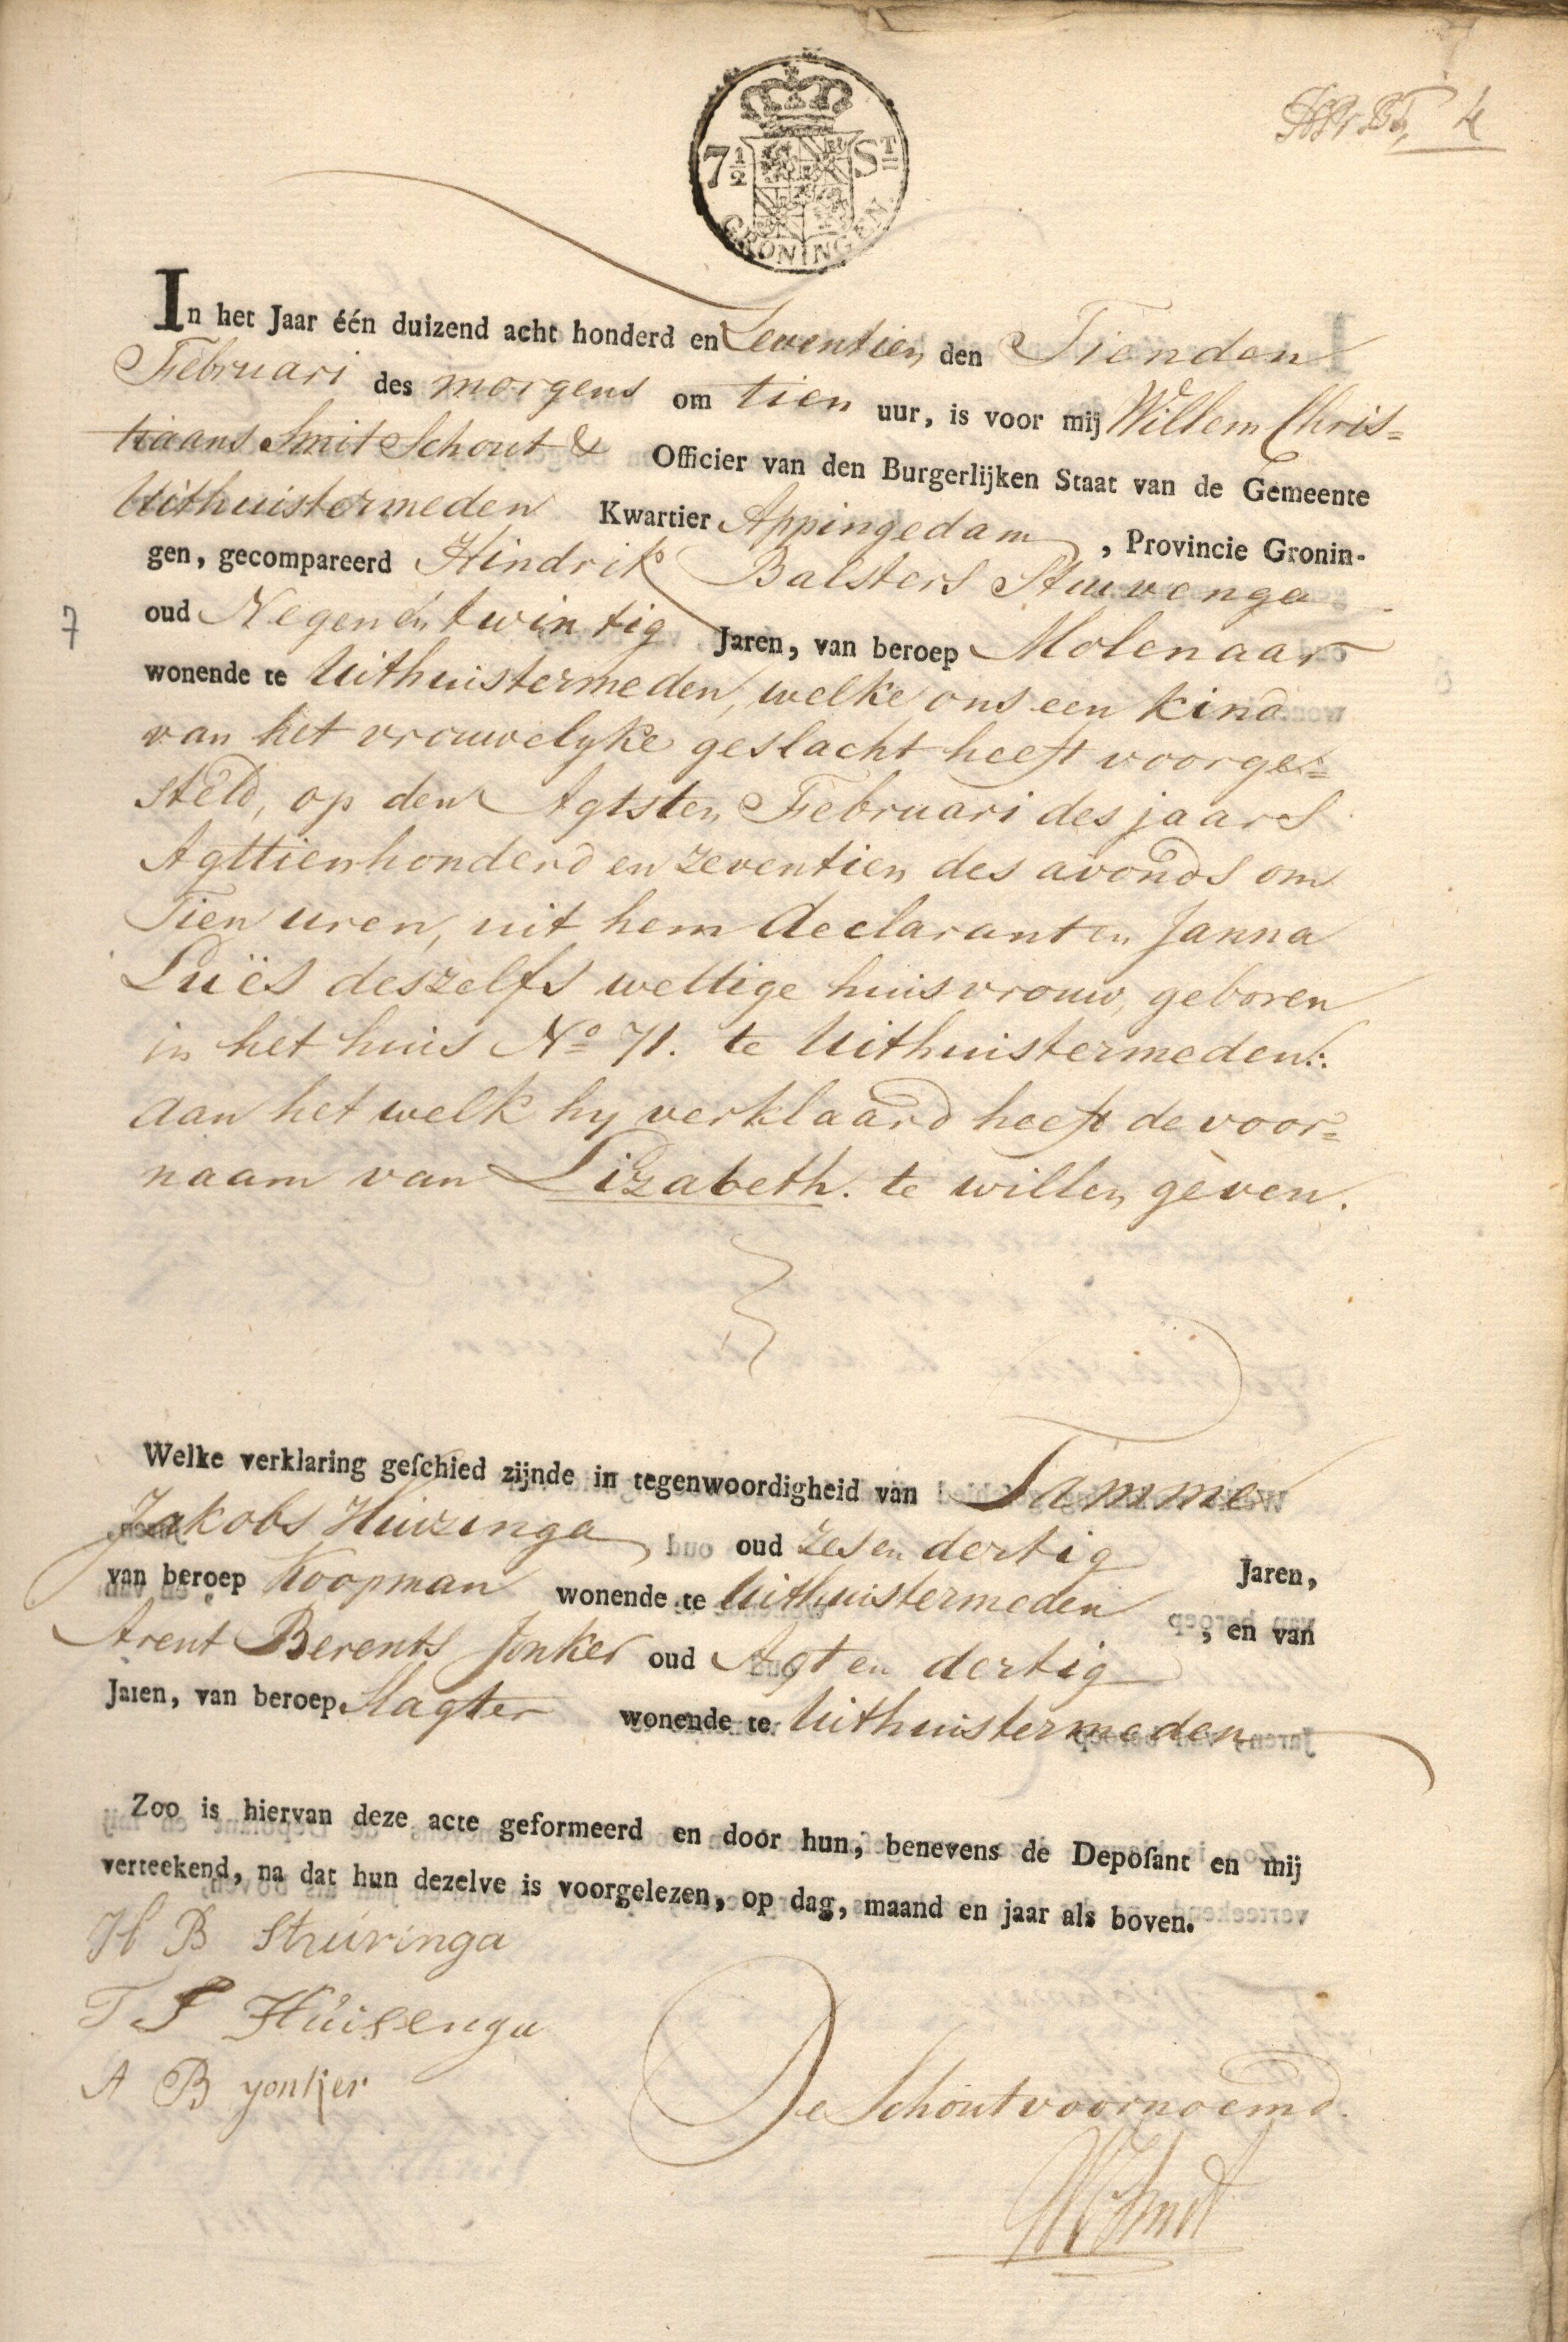 7½ St
GRONINGEN.
4
In het Jaar één duizend acht honderd en Zeventien den Tienden
Februari des morgens om tien uur, is voor mij Willem Chris=
tiaans Smit Schout & Officier van den Burgerlijken Staat van de Gemeente
Uithuistermeden Kwartier Appingedam, Provincie Gronin-
gen, gecompareerd Hindrik Balsters Stuivenga
oud Negen en twintig Jaren, van beroep Molenaar
7
wonende te Uithuistermeden, welke ons een kind
van het vrouwelyke geslacht heeft voorge=
steld, op den Agtsten Februari des jaars
Agttienhonderd en zeventien des avonds om
Tien uren, uit hem declarant en Janna
Luïes deszelfs wettige huisvrouw, geboren
in het huis No 71. te Uithuistermeden:.
aan het welk hy verklaard heeft de voor=
naam van Lizabeth. te willen geven.
Welke verklaring geſchied zijnde in tegenwoordigheid van Tamme
Jakobs Huizinga oud zes en dertig Jaren,
van beroep Koopman wonende te Uithuistermeden, en van
Arent Berents Jonker oud Agt en dertig
Jaren, van beroep Slagter wonende te Uithuistermeden
Zoo is hiervan deze acte geformeerd en door hun, benevens de Depoſant en mij
verteekend, na dat hun dezelve is voorgelezen, op dag, maand en jaar als boven.
H B Stuivinga
T J Huisenga
A B yonker
De Schout voornoemd.
WC Smit